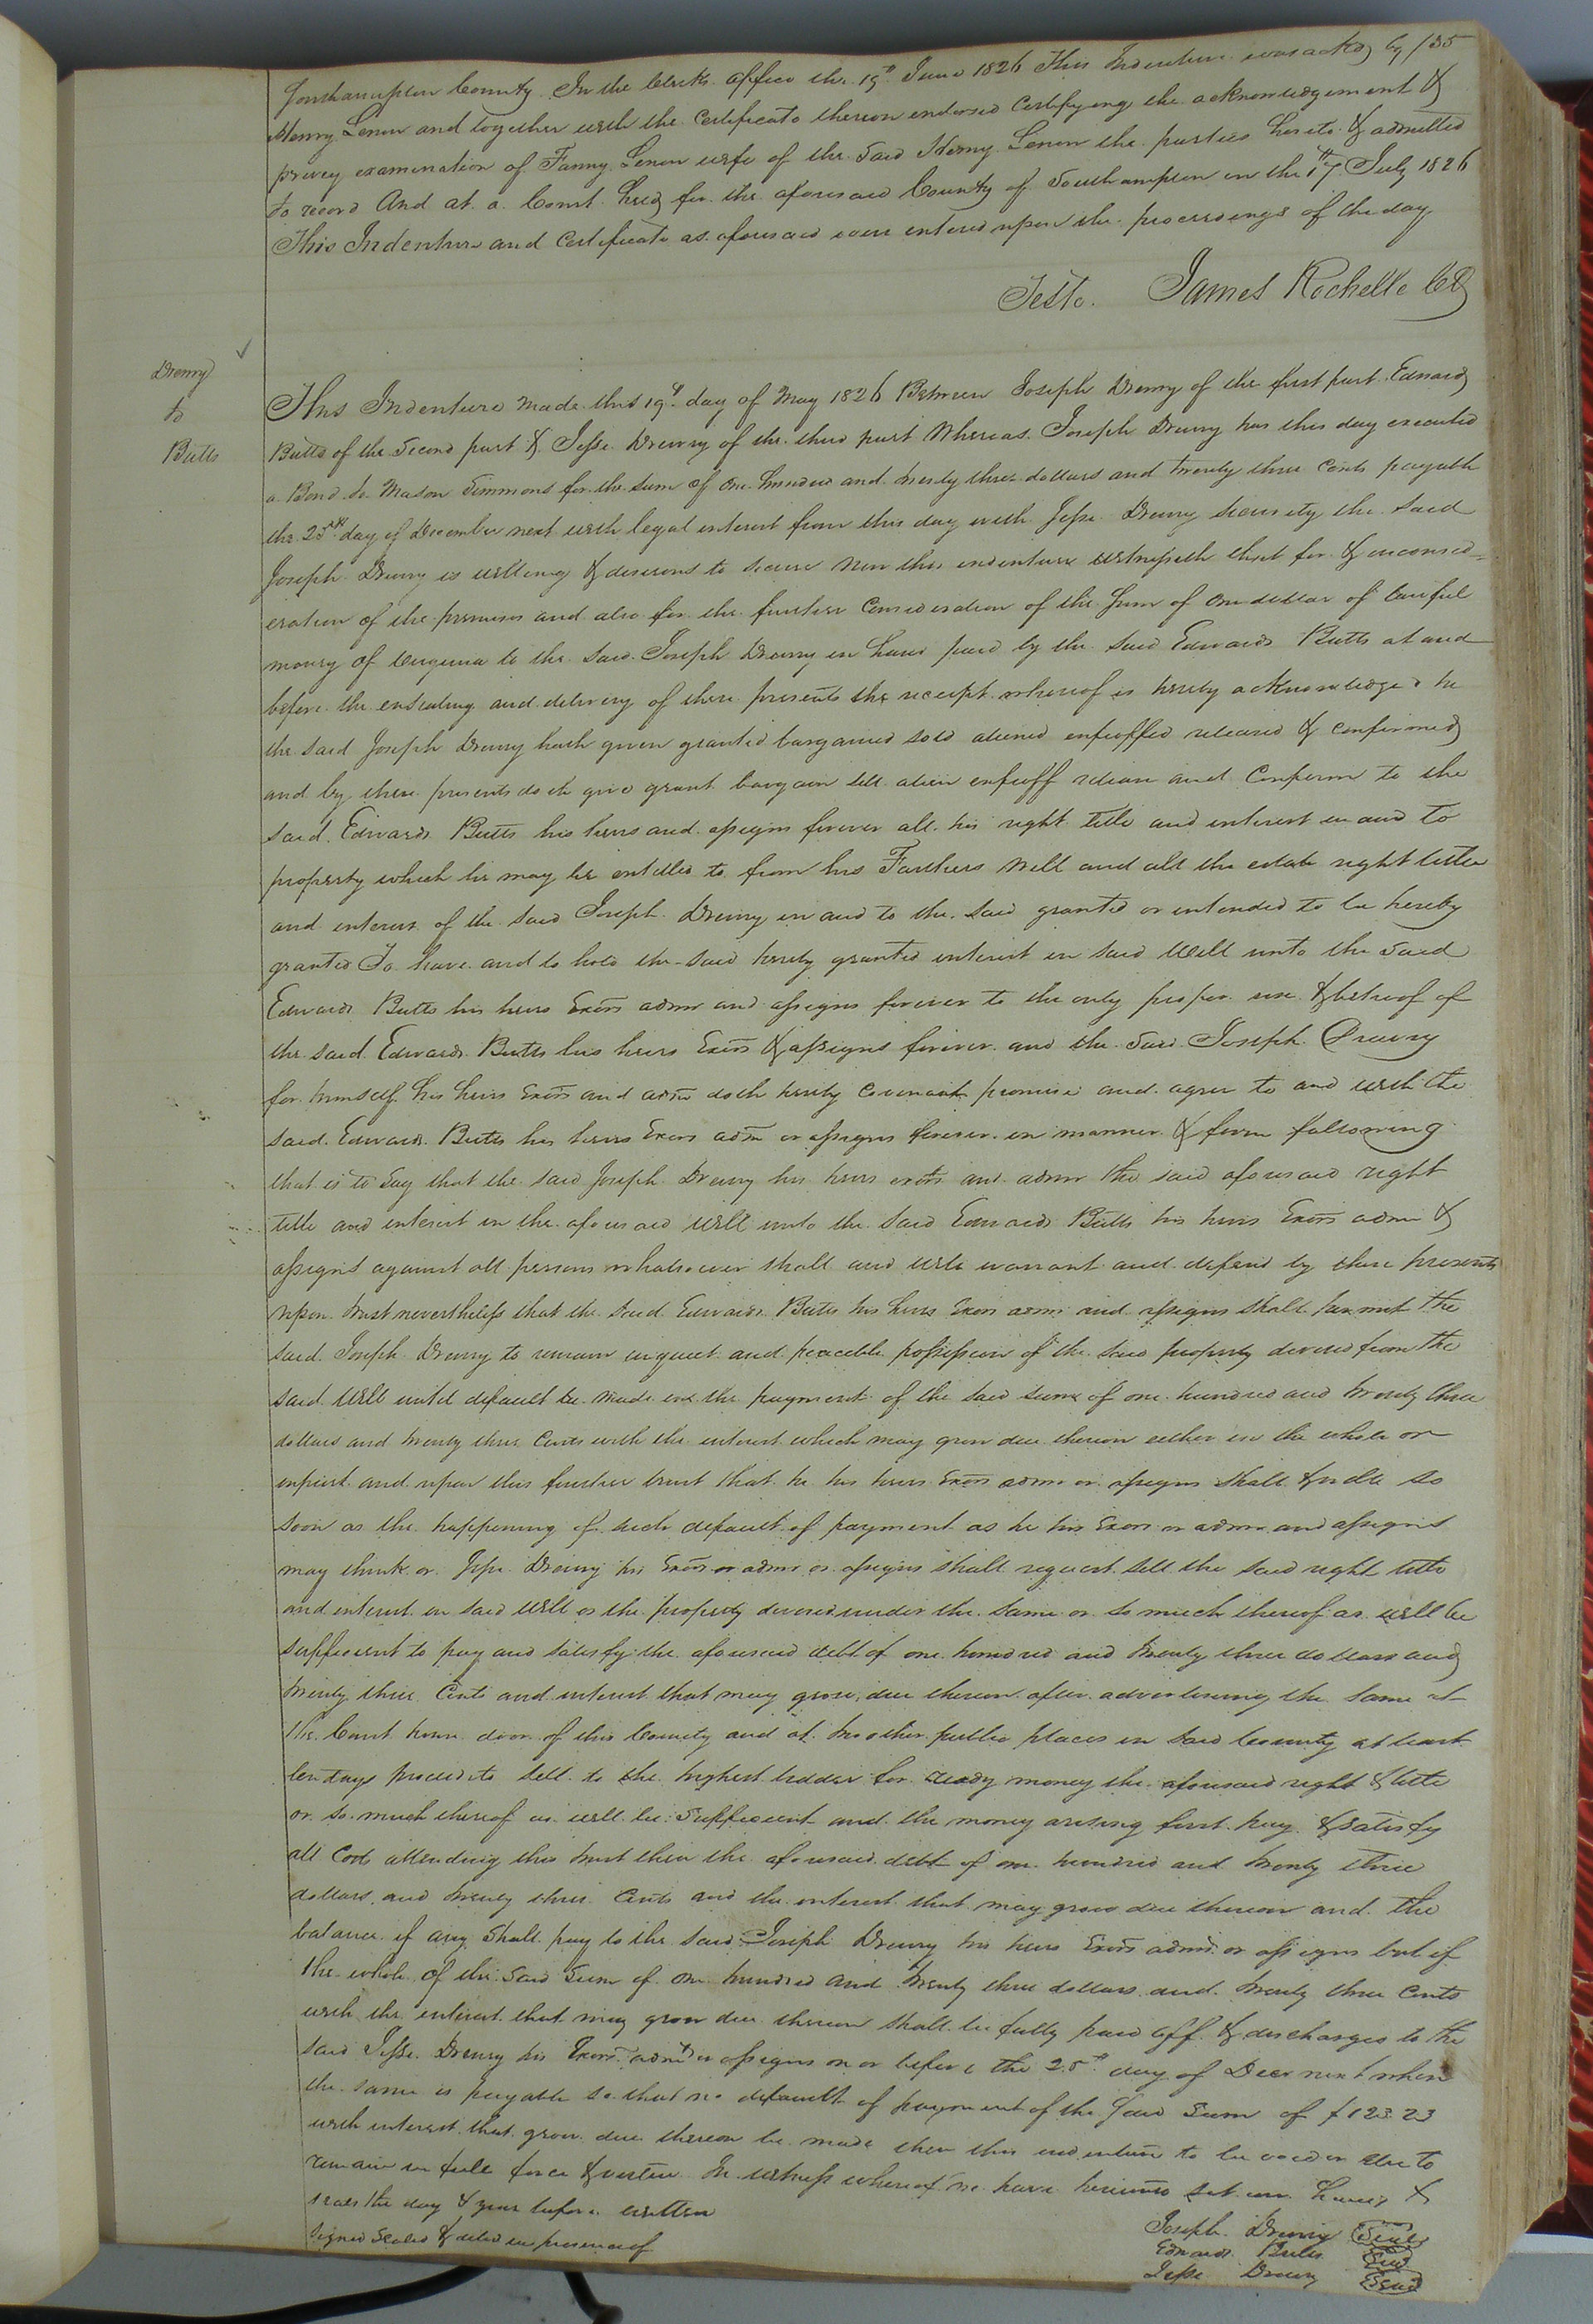 Southampton County In the Clerks office the 19th June 1826 This Indenture was ackd by 135
Henry Lenow and together with the Certificate thereon endorsed Certifying the acknowledgement &
privey examination of Fanny Lenow wife of the Said Henry Lenow the parties hereto & admitted
to record And at a Court held for the aforesaid County of Southampton on the 17th July 1826
This Indenture and Certificate as aforesaid were entered upon the proceedings of the day
Teste. James Rochelle CC
Drewry
to
Butts
This Indenture made this 19th day of May 1826 Between Joseph Drewry of the first part Edward
Butts of the Second part & Jesse Drewry of the third part Whereas Joseph Drewry has this day executed
a Bond to Mason Simmons for the sum of One hundred and twenty three dollars and twenty three Cents payable
the 25th day of December next with legal interest from this day with Jesse Drewry security the said
Joseph Drewry is willing & desirous to secure Now this indenture witnesseth that for & inconsid=
eration of the premises and also for the further Consideration of the Sum of One dollar of lawful
money of Virginia to the said Joseph Drewry in hand paid by the said Edward Butts at and
before the ensealing and delivery of these presents the receipt whereof is hereby acknowledged he
the said Joseph Drewry hath given granted bargained sold aliened enfeoffed released & confirmed
and by these presents doth give grant bargain sell alien enfeoff release and Confirm to the
said Edward Butts his heirs and assigns forever all his right title and interest in and to
property which he may be entitled to from his Farthers Will and all the estate right title
and interest of the said Joseph Drewry in and to the said granted or intended to be hereby
granted To have and to hold the said hereby granted interest in said Will unto the said
Edward Butts his heirs Exors admr and assigns forever to the only proper use & behoof of
the said Edward Butts his heirs Exors & assigns forever and the said Joseph Drewry
for himself his heirs Exors and adm doth hereby Covenant promise and agree to and with the
said Edward Butts his heirs Exors adm or assigns forever in manner & form following
that is to Say that the said Joseph Drewry his heirs exors and admr the said aforesaid right
title and interest in the aforesaid Will unto the said Edward Butts his heirs Exors admr &
assigns against all persons whatsoever shall and will warrant and defend by these presents
upon trust nevertheless that the said Edward Butts his heirs Exors admr and assigns shall permit the
said Joseph Drewry to remain in quiet and peaceable possession of the said property devised from the
said Will until default be made in the payment of the said sum of one hundred and twenty three
dollars and twenty three Cents with the interest which may grow due thereon either in the whole or
inpart and upon this further trust that he his heirs Exors admr or assigns shall & will so
soon as the happening of such default of payment as he his Exors or admr and assigns
may think or Jesse Drewry his Exors or admr or assigns shall request sell the said right title
and interest in said Will or the property devised under the same or so much thereof as will be
sufficient to pay and satisfy the aforesaid debt of one hundred and twenty three dollars and
twenty three Cents and interest that may grow due thereon after advertiseing the same at
the Court house door of this County and at two other public places in said County at least
ten days proceed to sell to the highest bidder for ready money the aforesaid right & title
or so much thereof as will be Sufficient and the money arising first pay & satisfy
all Costs attending this trust then the aforesaid debt of one hundred and twenty three
dollars and twenty three Cents and the interest that may grow due thereon and the
balance if any Shall pay to the said Joseph Drewry his heirs Exors admr or assigns but if
the whole of the said Sum of One hundred and twenty three dollars and twenty three Cents
with the interest that may grow due thereon shall be fully paid off & discharged to the
said Jesse Drewry his Exors admr or assigns on or before the 25th day of Decr next when
the same is payable so that no default of payment of the said Sum of $123.23
with interest that grow due thereon be made then this indenture to be void or else to
remain in full force & virtue In witness whereof we have hereunto set our hands &
seals the day & year before written
Signed Sealed & delivd in presence of
Joseph Drewry Seal
Edward Butts Seal
Jesse Drewry Seal